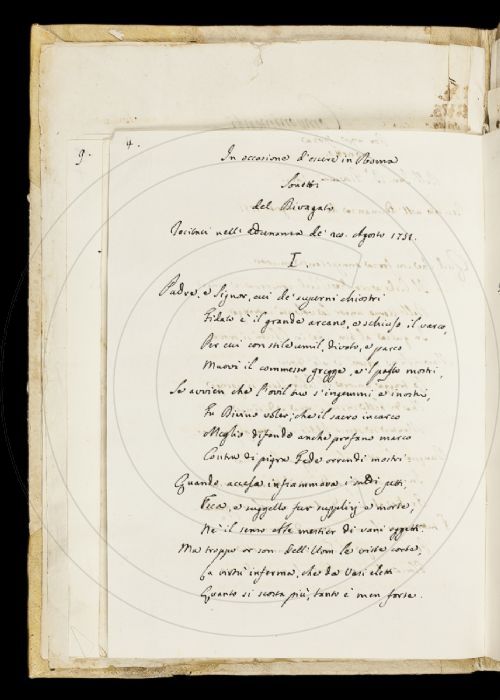 9.
4.
In occasione d'essere in Roma
Sonetti
del Rivagato
Recitati nell' Adunanza de' 20. Agosto 1751.
I.
Padre, e Signor, cui de' superni chiostri
Fidato è il grande arcano, e schiuso il varco,
Per cui con stile umil, divoto, e parco
Muovi il commesso gregge, e 'l pasto mostri,
Se avvien che l'ovil tuo s'ingemmi e inostri,
Fu Divino voler; che il sacro incarco
Meglio difende anche profano marco
Contra di pigra Fede orrendi mostri.
Quando accesa infiammava i petti
Esca, e suggello fur supplizj e morte;
Nè il senso mestier di vani oggetti.
Ma troppo or son dell'Uom le viste corte,
La virtù inferma, che da Vasi eletti
Quanto si scosta più, tanto è men forte.